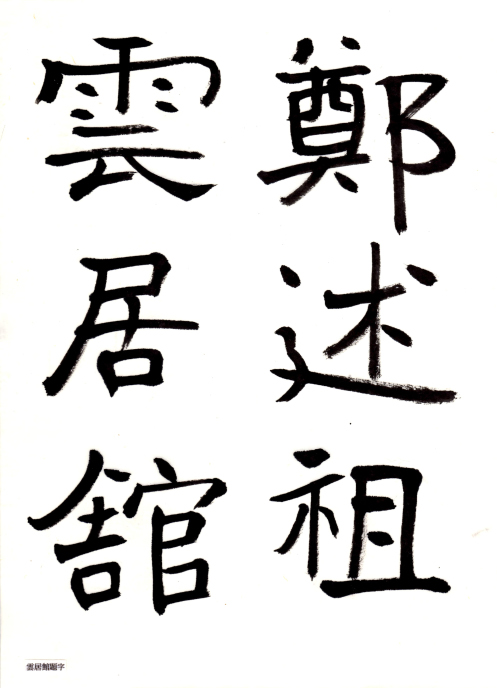 鄭述祖
雲居舘
雲居館題字